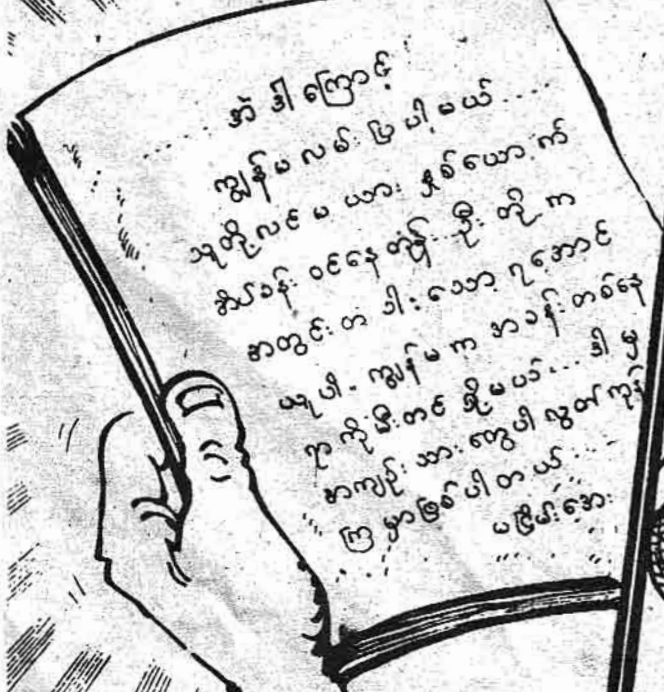 အဲ ဒါ ကြောင့်
ကျွန်မ လမ်း ပြ ပါ့ မယ် ....
သူတို့ လင် မ ယား နှစ်ယောက်
အိပ်ခန်း ဝင်နေ တုန်း ဦး တို့ က
အတွင်း တ ခါး သော့ ရအောင်
ယူ ပါ - ကျွန်မ က အခန်း တစ်နေ
ရာ ကို မီးတင် ရှို့ မယ် ... ဒါ မှ
အကျဉ်း သား တွေပါ လွတ် ကုန်
ကြ မှာ ဖြစ် ပါ တယ် ....
မငြိမ်းအေး